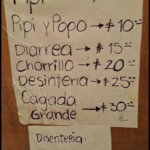 Pipi y Popo → $10
Diarrea → $15
Chorrillo → $20
Desinteria → $25
Cagada
Grande → $30
Disenteria.